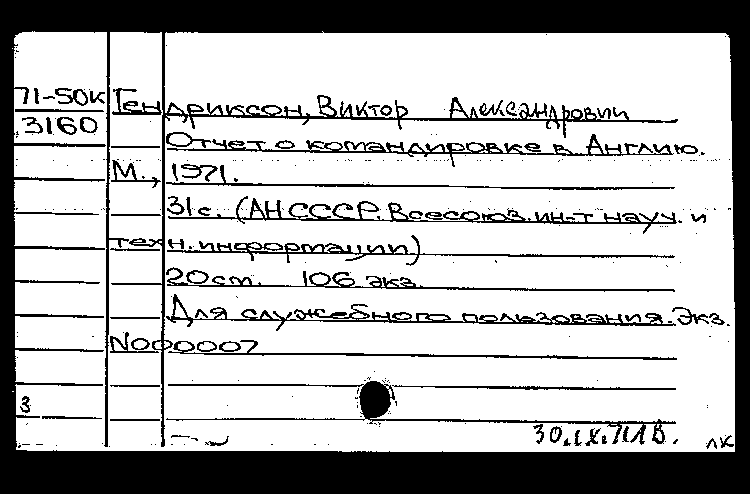 71-50к Гендриксон, Виктор Александрович
3160 Отчет о командировке в Англию.
М., 1971.
31с. (АН СССР. Всесоюз. ин-т науч. и
техн. информации)
20 cm. 106 экз.
Для служебного пользования. Экз.
N000007
3
30.IX.71
лк